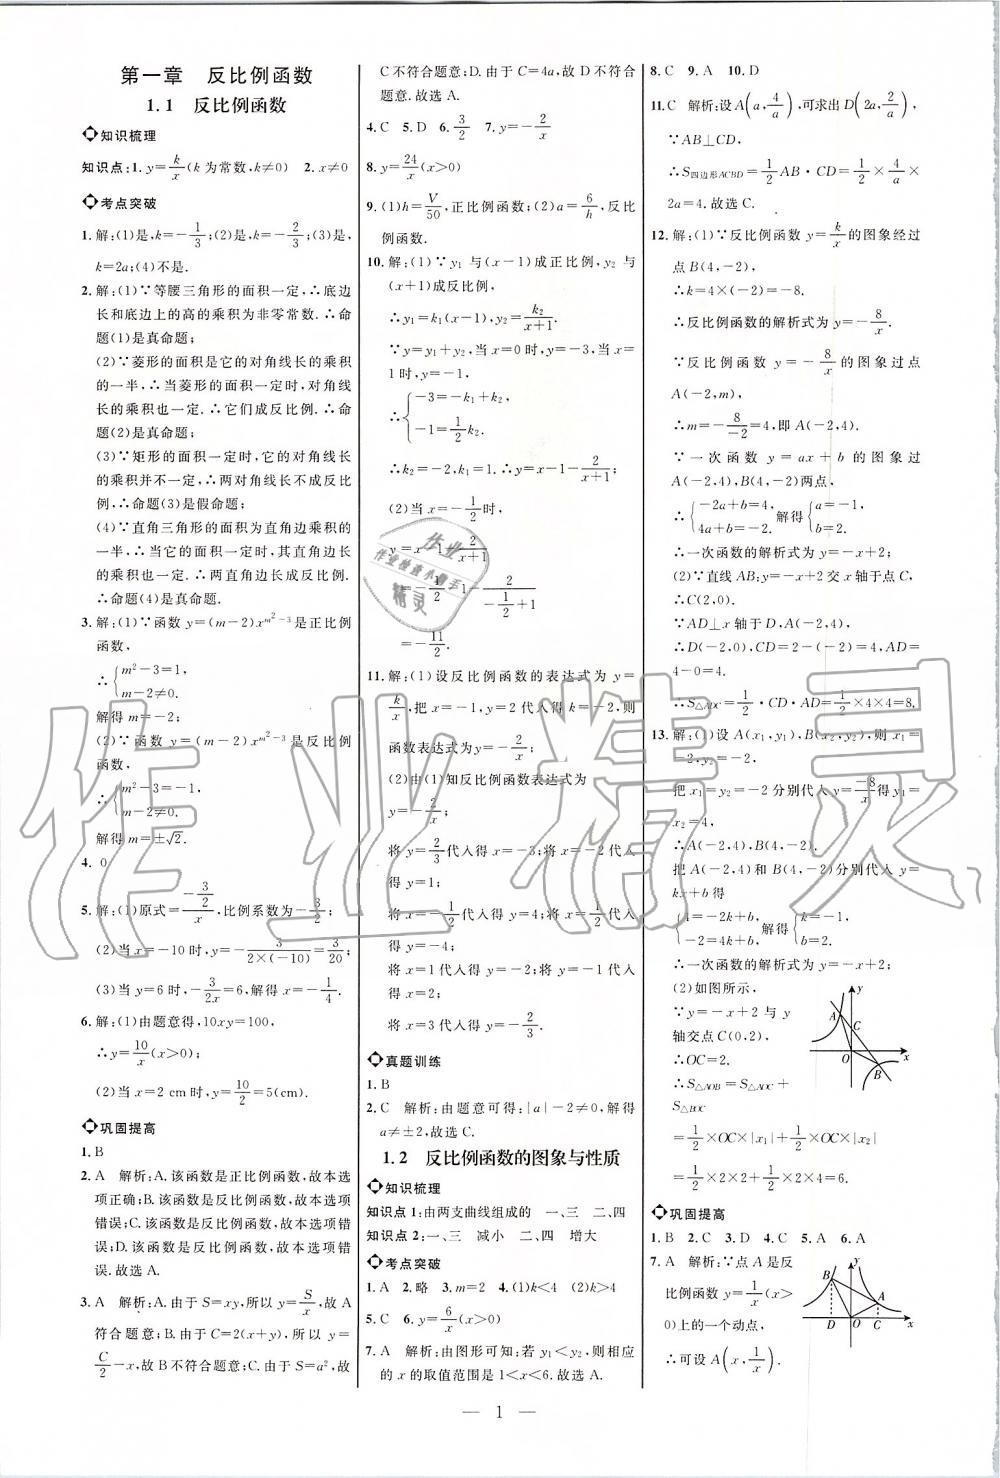 第一章　反比例函数
1.1　反比例函数
知识梳理
知识点:1. y=k/x(k 为常数,k≠0)　2. x≠0
考点突破
1. 解:(1)是,k=-1/3;(2)是,k=-2/3;(3)是,
k=2a;(4)不是.
2. 解:(1)∵等腰三角形的面积一定,∴底边
长和底边上的高的乘积为非零常数.∴命
题(1)是真命题;
(2)∵菱形的面积是它的对角线长的乘积
的一半,∴当菱形的面积一定时,对角线
长的乘积也一定.∴它们成反比例.∴命
题(2)是真命题;
(3)∵矩形的面积一定时,它的对角线长
的乘积并不一定,∴两对角线长不成反比
例,∴命题(3)是假命题;
(4)∵直角三角形的面积为直角边乘积的
一半,∴当它的面积一定时,其直角边长
的乘积也一定.∴两直角边长成反比例.
∴命题(4)是真命题.
3. 解:(1)∵函数 y=(m-2)x^{m²-3}是正比例
函数,
∴{m²-3=1,
m-2≠0.
解得 m=-2;
(2)∵函数 y=(m-2)x^{m²-3}是反比例
函数,
∴{m²-3=-1,
m-2≠0.
解得 m=±√2.
4. 0
5. 解:(1)原式=(-3/2)/x,比例系数为-3/2;
(2)当 x=-10 时,y=-3/(2×(-10))=3/20;
(3)当 y=6 时,-3/(2x)=6,解得 x=-1/4.
6. 解:(1)由题意得,10xy=100,
∴y=10/x(x>0);
(2)当 x=2 cm 时,y=10/2=5(cm).
巩固提高
1. B
2. A　解析:A.该函数是正比例函数,故本选
项正确;B.该函数是反比例函数,故本选项
错误;C.该函数是反比例函数,故本选项错
误;D.该函数是反比例函数,故本选项错
误.故选 A.
3. A　解析:A.由于 S=xy,所以 y=S/x,故 A
符合题意;B.由于 C=2(x+y),所以 y=
C/2-x,故 B 不符合题意;C.由于 S=a²,故
C 不符合题意;D.由于 C=4a,故 D 不符合
题意.故选 A.
4. C　5. D　6. 3/2　7. y=-2/x
8. y=24/x(x>0)
9. (1)h=V/50,正比例函数;(2)a=6/h,反比
例函数.
10. 解:(1)∵y₁ 与(x-1)成正比例,y₂ 与
(x+1)成反比例,
∴y₁=k₁(x-1),y₂=k₂/(x+1).
∵y=y₁+y₂,当 x=0 时,y=-3,当 x=
1 时,y=-1,
∴{-3=-k₁+k₂,
-1=1/2k₂.
∴k₂=-2,k₁=1.∴y=x-1-2/(x+1);
(2)当 x=-1/2时,
y=x-1-2/(x+1)
=-1/2-1-2/(-1/2+1)
=-11/2.
11. 解:(1)设反比例函数的表达式为 y=
k/x,把 x=-1,y=2 代入得 k=-2,则
函数表达式为 y=-2/x;
(2)由(1)知反比例函数表达式为
y=-2/x,
将 y=2/3代入得 x=-3;将 x=-2 代入
得 y=1;
将 x=-1/2代入得 y=4;将 x=1/2代入
得 y=-4;
将 x=1 代入得 y=-2;将 y=-1 代入
得 x=2;
将 x=3 代入得 y=-2/3.
真题训练
1. B
2. C　解析:由题意可得:|a|-2≠0,解得
a≠±2,故选 C.
1.2　反比例函数的图象与性质
知识梳理
知识点 1:由两支曲线组成的　一、三　二、四
知识点 2:一、三　减小　二、四　增大
考点突破
1. A　2. 略　3. m=2　4. (1)k<4　(2)k>4
5. C　6. y=6/x(x>0)
7. A　解析:由图形可知:若 y₁<y₂,则相应
的 x 的取值范围是 1<x<6.故选 A.
8. C　9. A　10. D
11. C　解析:设 A(a,4/a),可求出 D(2a,2/a),
∵AB⊥CD,
∴S四边形ACBD=1/2AB·CD=1/2×4/a×
2a=4.故选 C.
12. 解:(1)∵反比例函数 y=k/x的图象经过
点 B(4,-2),
∴k=4×(-2)=-8.
∴反比例函数的解析式为 y=-8/x.
∵反比例函数 y=-8/x的图象过点
A(-2,m),
∴m=-8/-2=4,即 A(-2,4).
∵一次函数 y=ax+b 的图象过
A(-2,4),B(4,-2)两点,
∴{-2a+b=4, 4a+b=-2. 解得{a=-1, b=2.
∴一次函数的解析式为 y=-x+2;
(2)∵直线 AB:y=-x+2 交 x 轴于点 C,
∴C(2,0).
∵AD⊥x 轴于 D,A(-2,4),
∴D(-2,0),CD=2-(-2)=4,AD=
4-0=4.
∴S△ADC=1/2·CD·AD=1/2×4×4=8.
13. 解:(1)设 A(x₁,y₁),B(x₂,y₂),则 x₁=
-2,y₂=-2,
把 x₁=y₂=-2 分别代入 y=-8/x得 y₁=
x₂=4,
∴A(-2,4),B(4,-2).
把 A(-2,4)和 B(4,-2)分别代入 y=
kx+b 得
{4=-2k+b, -2=4k+b, 解得{k=-1, b=2.
∴一次函数的解析式为 y=-x+2;
(2)如图所示,
∵y=-x+2 与 y
轴交点 C(0,2),
∴OC=2.
∴S△AOB=S△AOC+
S△BOC
=1/2×OC×|x₁|+1/2×OC×|x₂|
=1/2×2×2+1/2×2×4=6.
y
A
C
O
B
x
巩固提高
1. B　2. C　3. D　4. C　5. A　6. A
7. A　解析:∵点 A 是反
比例函数 y=1/x(x>
0)上的一个动点,
∴可设 A(x,1/x),
B
y
A
D
O
C
x
作业精灵
作业
作业检查小帮手
精灵
— 1 —